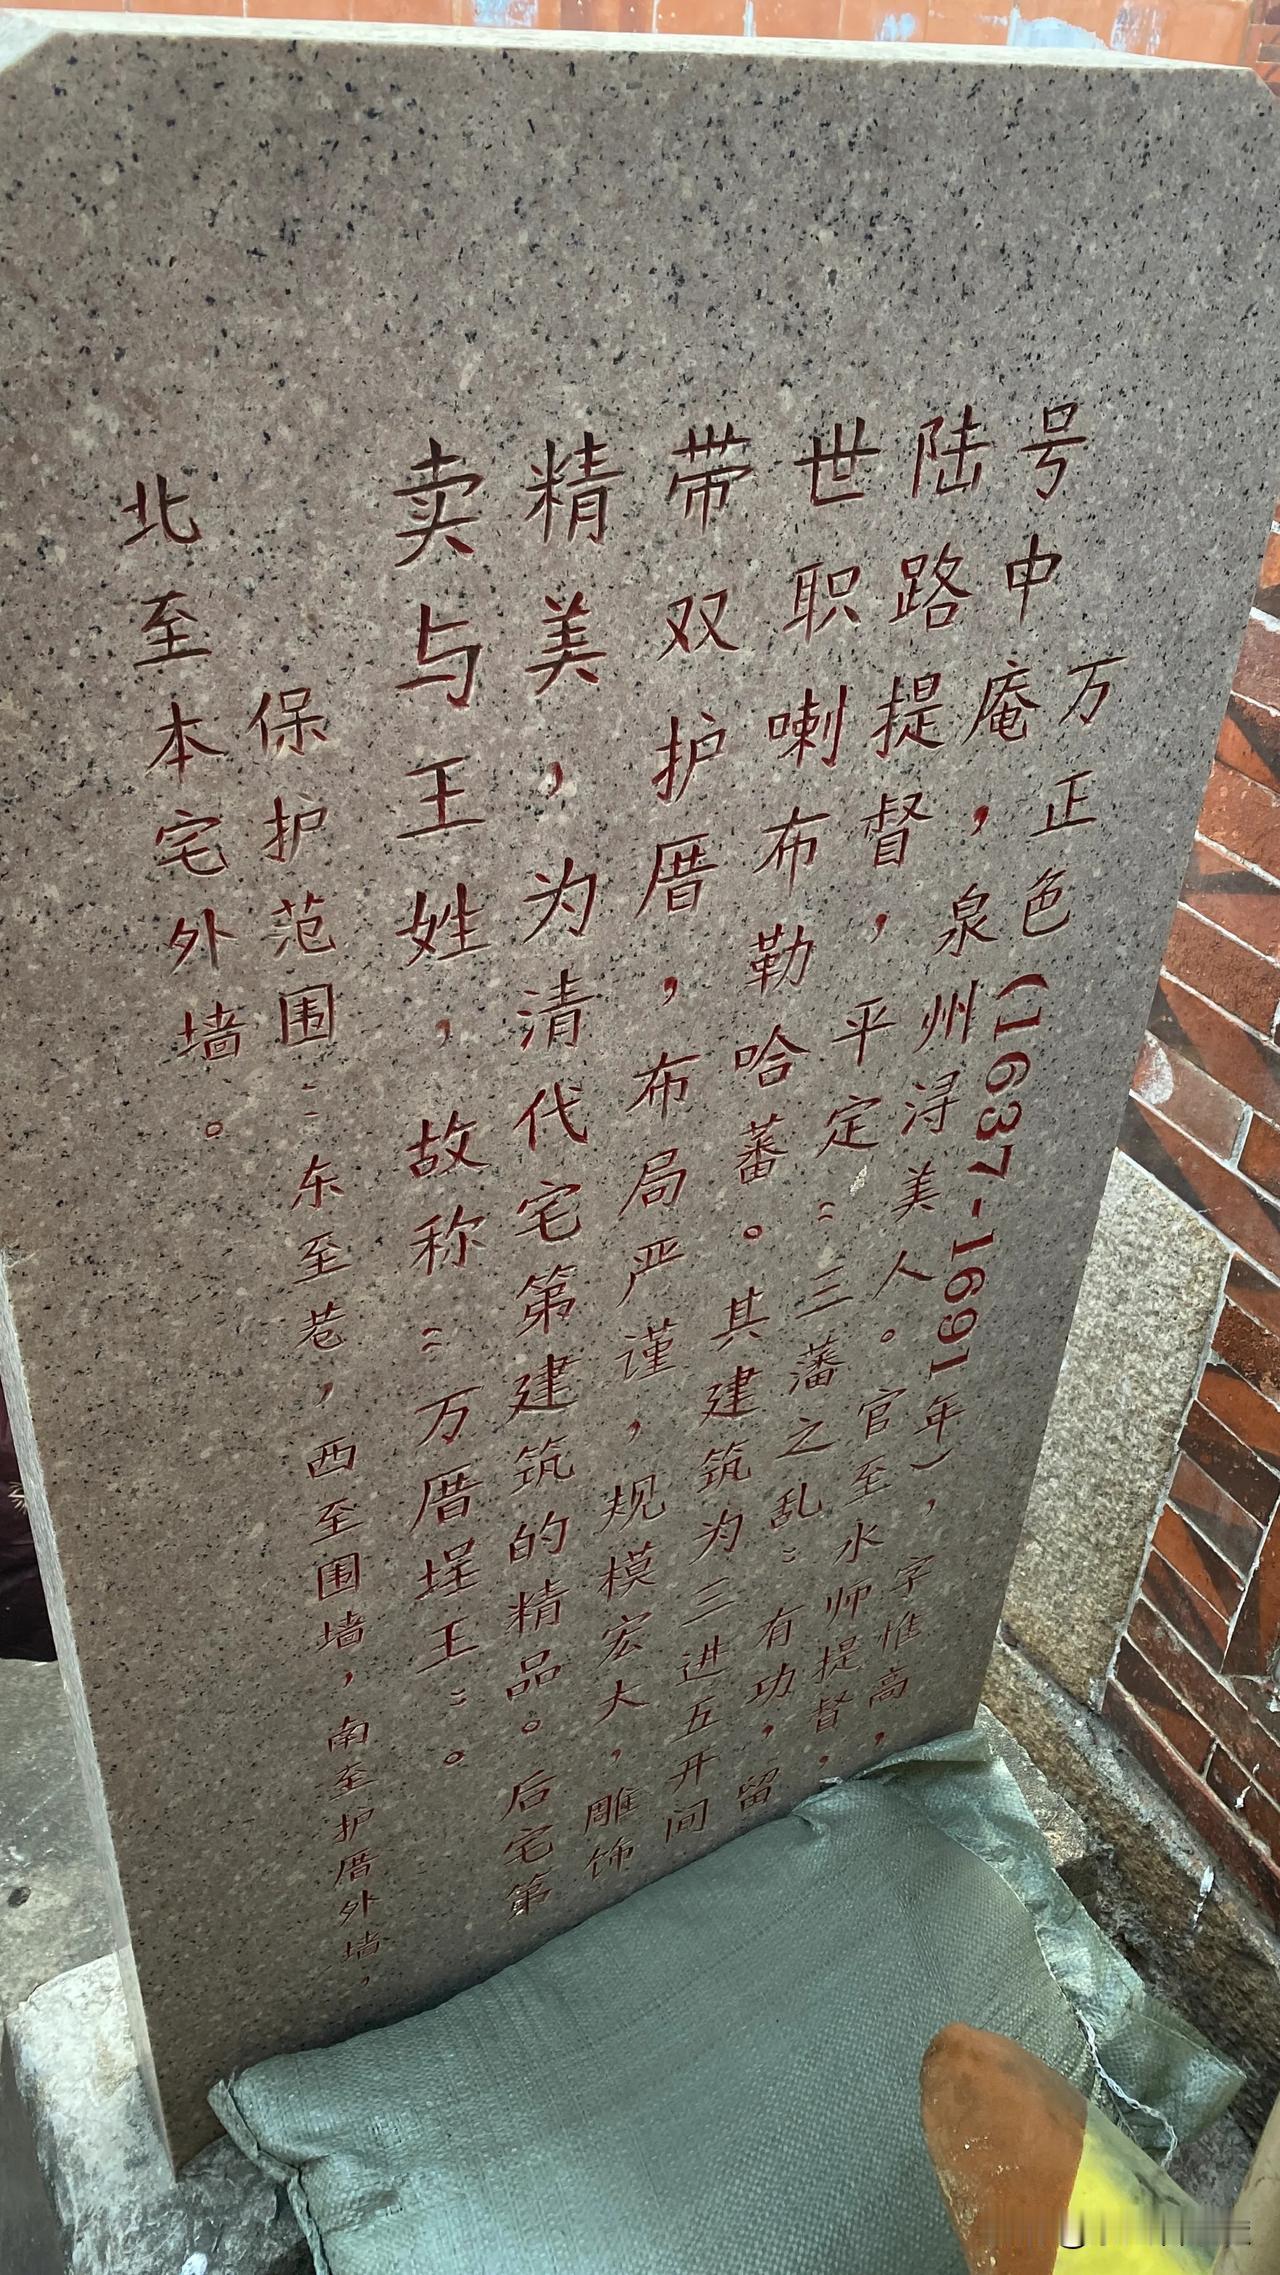 万正色(1637-1691年)，字惟高，
号中庵，泉州浔美人。官至水师提督，
陆路提督，平定“三藩之乱”有功，留
世职喇布勒哈蕃。其建筑为三进五开间
带双护厝，布局严谨，规模宏大，雕饰
精美，为清代宅第建筑的精品。后宅第
卖与王姓，故称“万厝埕王”。
保护范围：东至巷，西至围墙，南至护厝外墙，
北至本宅外墙。